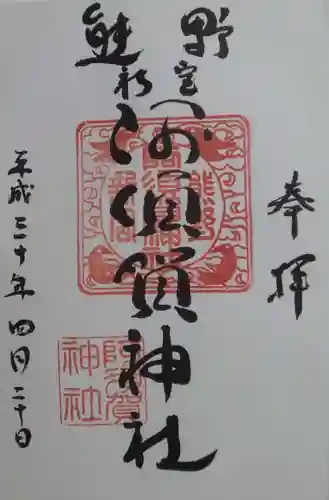 奉拝
熊野
新宮
阿須賀神社
阿須賀神社
平成三十年四月二十日